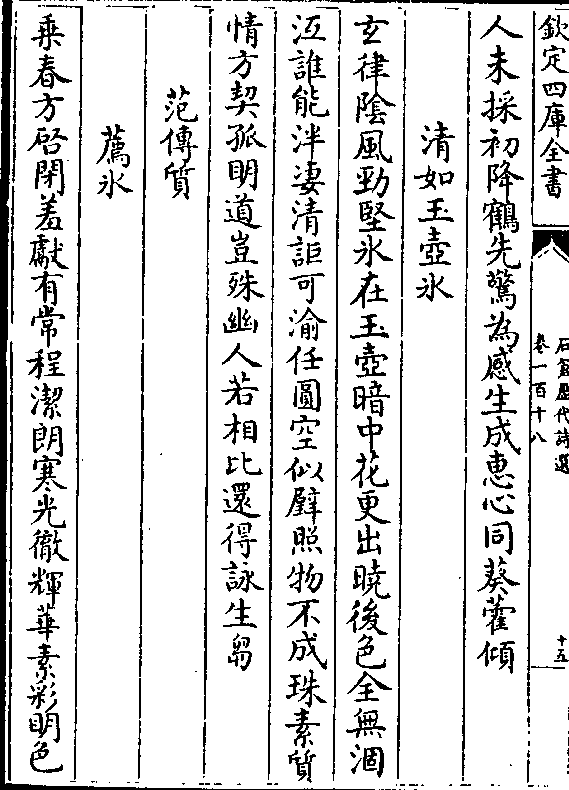 欽定四庫全書
石倉歷代詩選
卷一百十八
十五
人未採初降鶴先驚為感生成惠心同葵藿傾
清如玉壺氷
玄律陰風勁堅氷在玉壺暗中花更出曉後色全無涸
沍誰能泮淒清詎可渝任圓空似璧照物不成珠素質
情方契孤明道豈殊幽人若相比還得詠生芻
范傳質
薦氷
乗春方啓閉羞獻有常程潔朗寒光徹輝華素彩明色